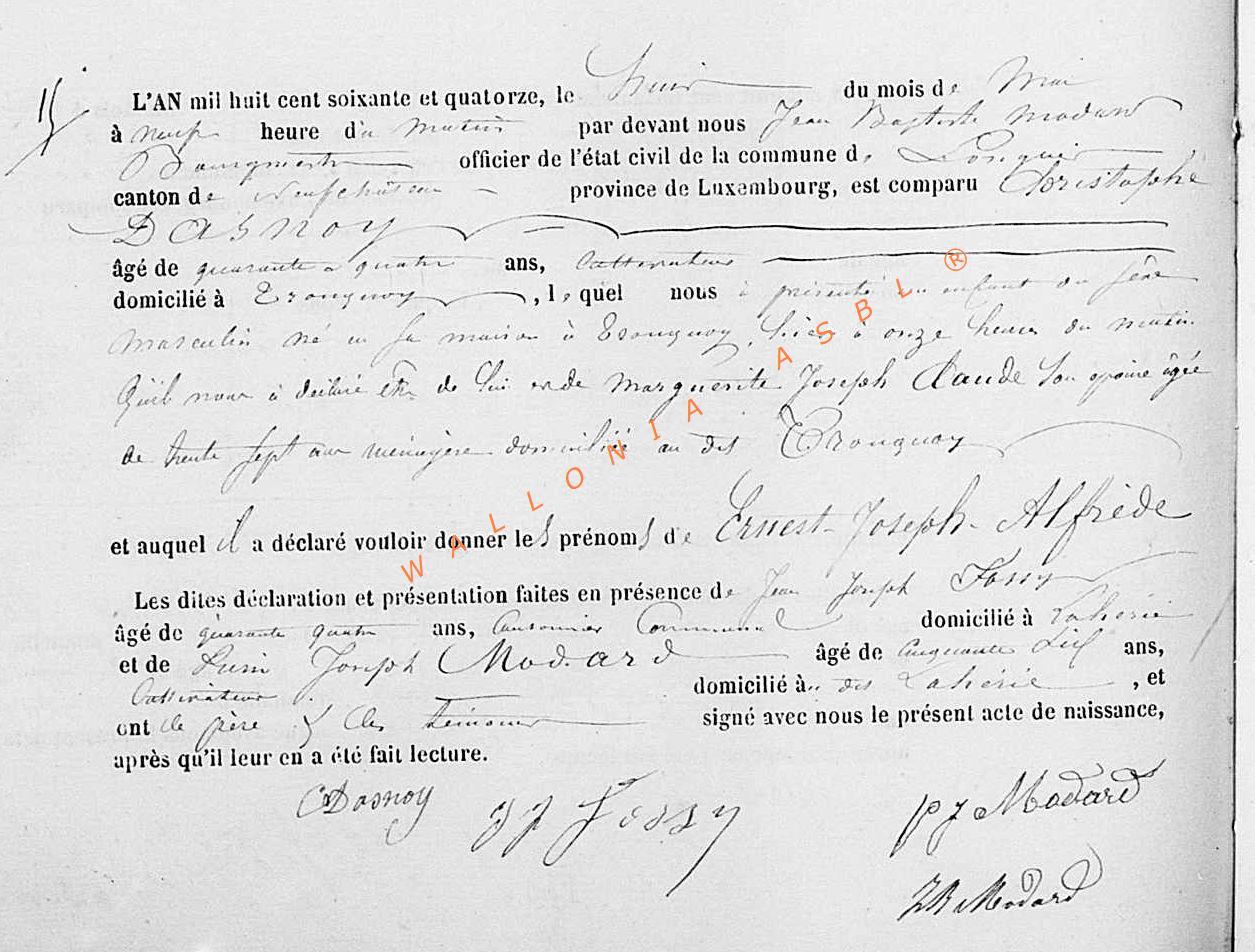 15
L'AN mil huit cent soixante et quatorze, le huit du mois de Mai
à neuf heure du matin par devant nous Jean Baptiste Modard
Bourgmestre officier de l'état civil de la commune de
canton de Neufchâteau province de Luxembourg, est comparu Christophe
DASNOY
âgé de quarante quatre ans, cultivateur
domicilié à Tronquoy, lequel nous à présenté un enfant du sexe
masculin né en sa maison à Tronquoy, hier à onze heures du matin
qu'il nous à déclaré être de lui et de Marguerite Joseph Claude son épouse âgée
de trente sept ans ménagère domiciliée au dit Tronquoy
et auquel il a déclaré vouloir donner les prénoms de Ernest-Joseph-Alfrède
Les dites déclaration et présentation faites en présence de Jean Joseph Fossy
âgé de quarante quatre ans, Communal domicilié à Lahérie
et de Joseph Modard âgé de cinquante ans,
Cultivateur domicilié à Lahérie, et
ont le père & les témoins signé avec nous le présent acte de naissance,
après qu'il leur en a été fait lecture.
CDasnoy JJ Fossy pJ Modard
JB Modard
WALLONIA ASBL ®